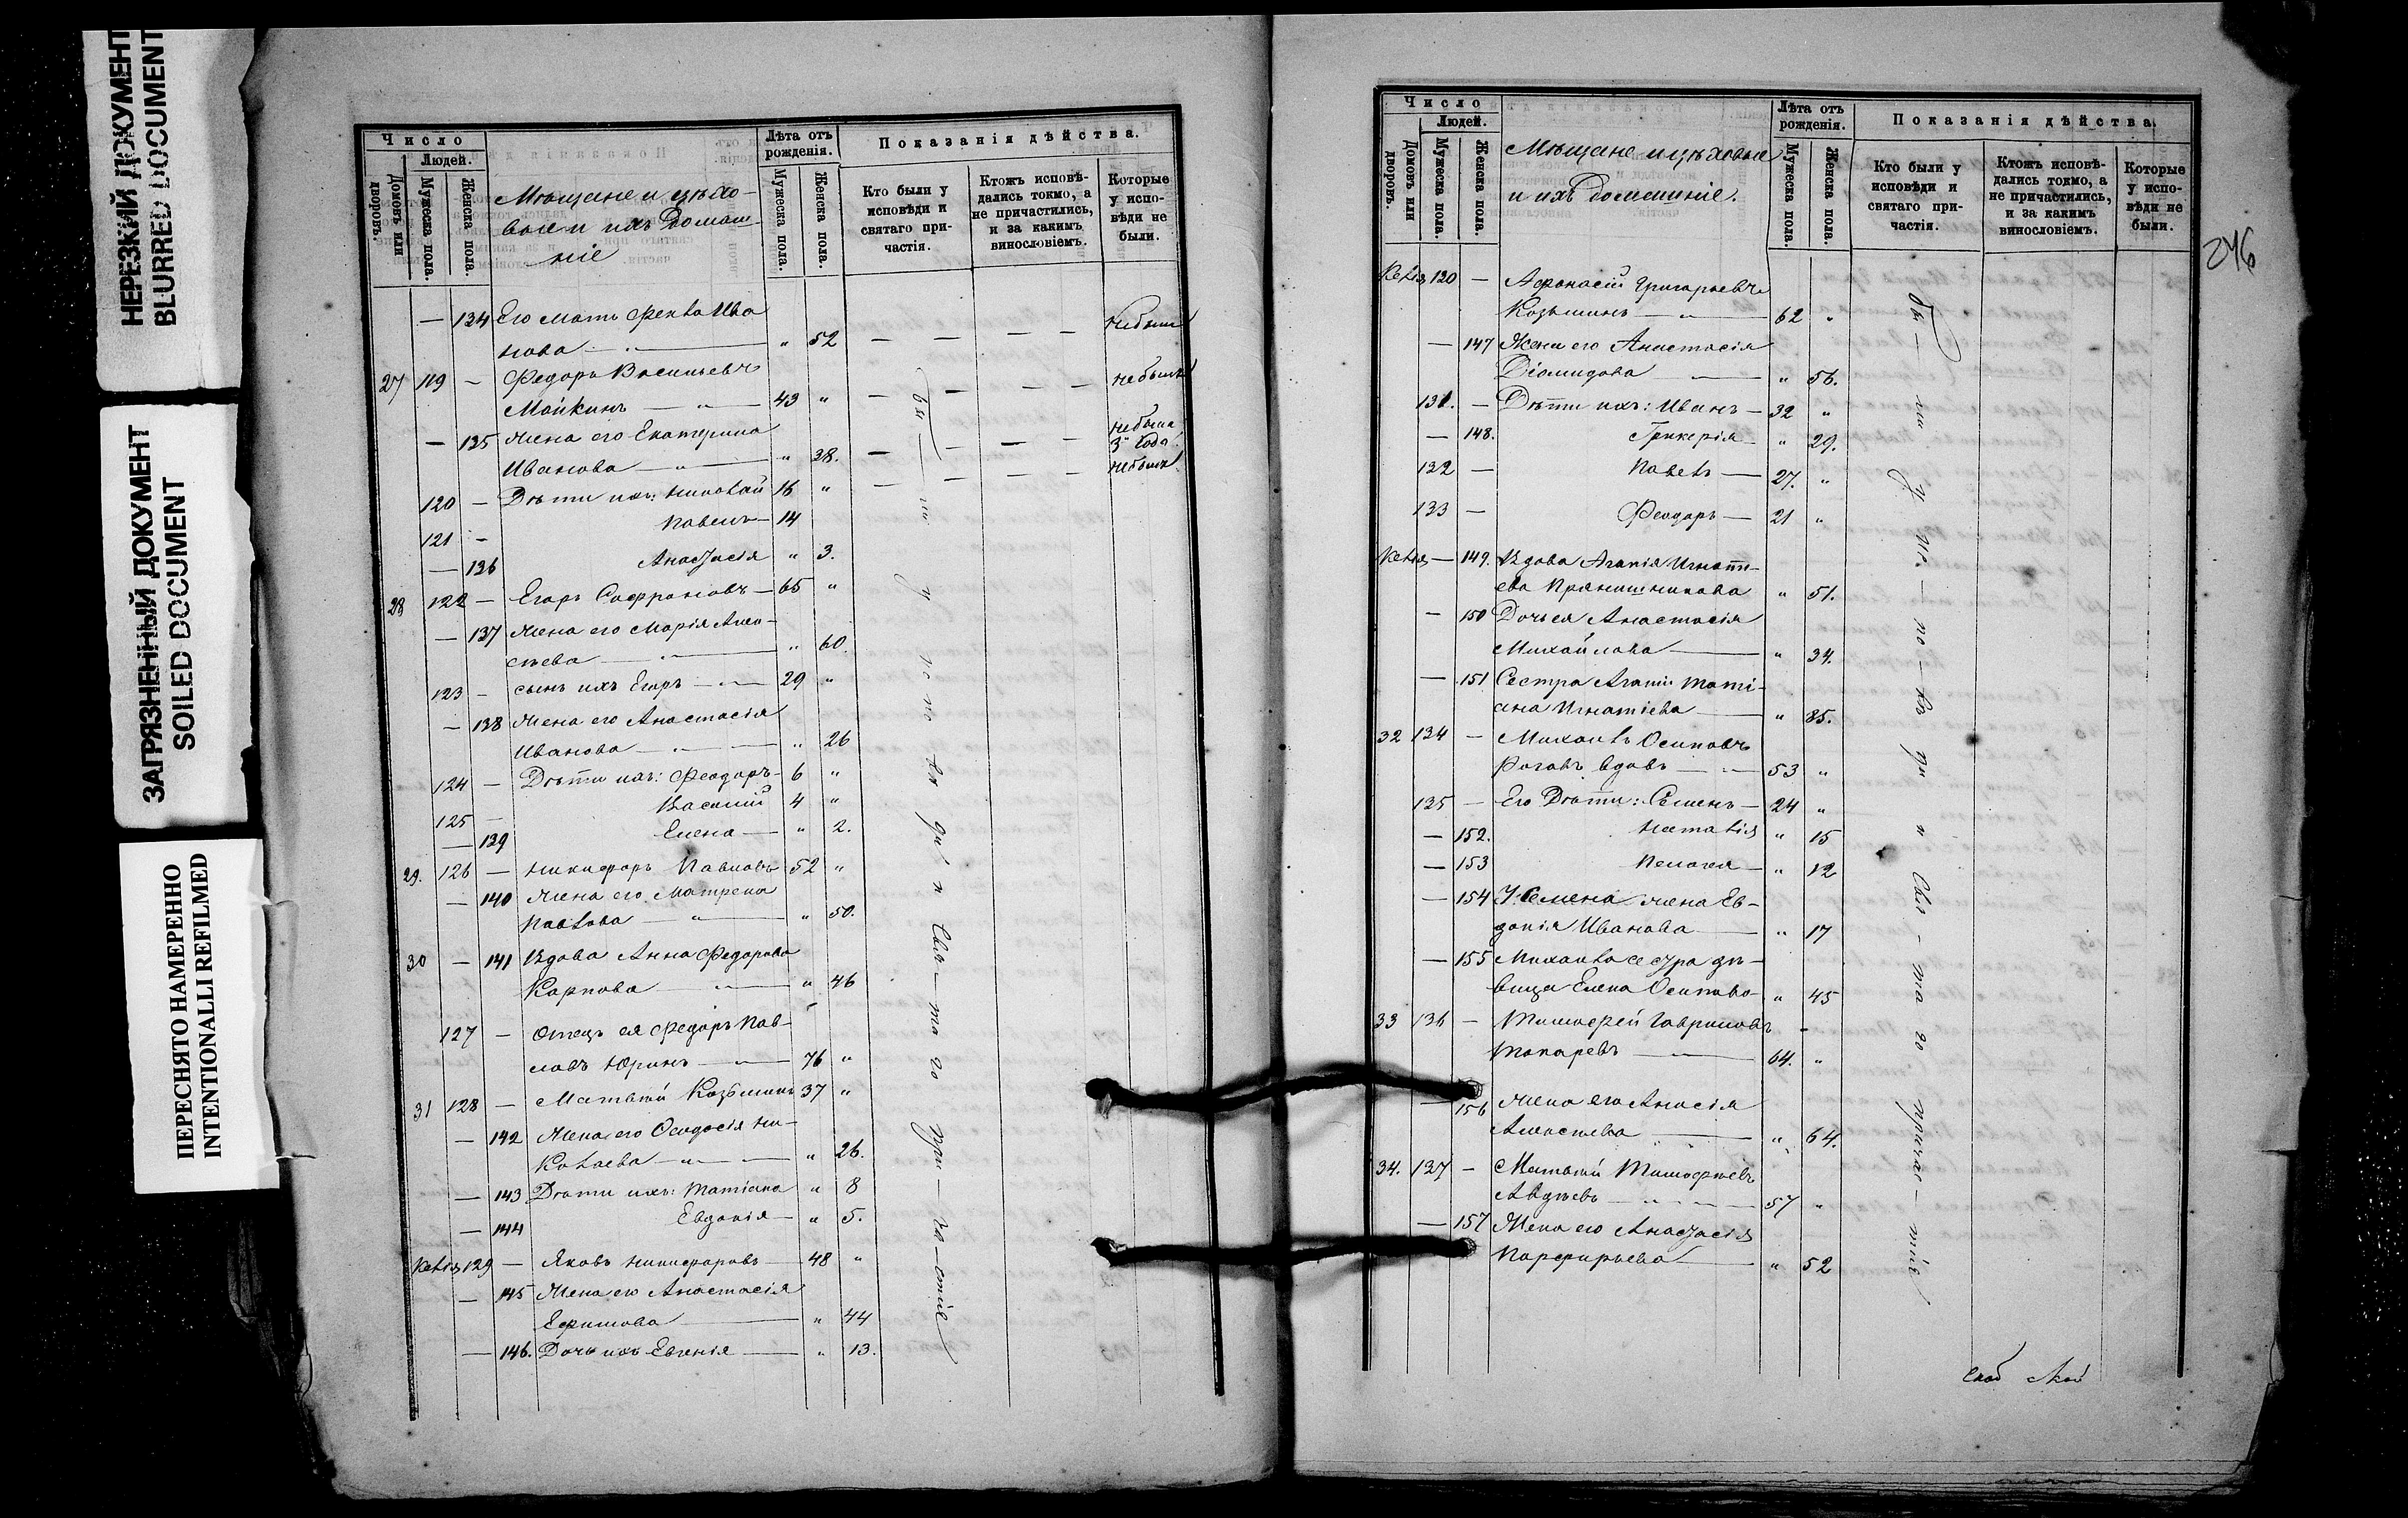 НЕРЕЗКИЙ ДОКУМЕНТ
BLURRED DOCUMENT
ЗАГРЯЗНЕННЫЙ ДОКУМЕНТ
SOILED DOCUMENT
ПЕРЕСНЯТО НАМЕРЕННО
INTENTIONALLI REFILMED
Число
Людей.
Домовъ или дворовъ.
Мужеска пола.
Женска пола.
Мѣщане и цѣхо-
вые и ихъ Домаш-
ніе
Лѣта отъ рожденія.
Мужеска пола.
Женска пола.
Показанія дѣйства.
Кто были у исповѣди и святаго при-частія.
Ктожъ исповѣ-дались токмо, а не причастились, и за какимъ винословіемъ.
Которые у испо-вѣди не были.
— 134 Его мать Фекла Ива
нова — " 52 — — — —
27 119 — Федоръ Васильевъ
Майкинъ — 43 " — — — —
— 135 Жена его Екатерина
Иванова — " 38. — — — —
120 — Дѣти ихъ: Николай 16 " — — — —
121 — Павелъ — 14
— 136 Анастасія " 3.
28 122 — Егоръ Софроновъ — 65 "
— 137 Жена его Марія Алек-
сѣева — " 60.
123 — сынъ ихъ Егоръ — 29 "
— 138 Жена его Анастасія
Иванова — " 26
124 — Дѣти ихъ: Феодоръ — 6 "
125 — Василій 4 "
— 139 Елена — " 2.
29. 126 — Никифоръ Павловъ 52 "
— 140 Жена его Матрена
Павлова — " 50.
30 — 141 Вдова Анна Федорова
Карпова — " 46
127 — Отецъ ея Федоръ Пав-
ловъ Юринъ — 76 "
31 128 — Матвѣй Козьминъ 37 "
— 142 Жена его Феодосія Ни-
колаева — " 26.
— 143 Дѣти ихъ: Татіана " 8
— 144 Евдокія — " 5.
Келія 129 — Яковъ Никифоровъ — 48 "
— 145 Жена его Анастасія
Ефимова — " 44
— 146. Дочь ихъ Евгенія — " 13.
бы — ли у испо-вѣди и Свя-таго при-ча-стія
Число
Людей.
Домовъ или дворовъ.
Мужеска пола.
Женска пола.
Мѣщане и цѣховые
и ихъ домашніе.
Лѣта отъ рожденія.
Мужеска пола.
Женска пола.
Показанія дѣйства.
Кто были у исповѣди и святаго при-частія.
Ктожъ исповѣ-дались токмо, а не причастились, и за какимъ винословіемъ.
Которые у испо-вѣди не были.
246
Келія 130 — Афонасій Григорьевъ
Козьминъ — 62 "
— 147 Жена его Анастасія
Діомидова — " 56.
131. — Дѣти ихъ: Иванъ — 32 "
— 148. Гликерія — " 29.
132 — Павелъ — 27. "
133 — Феодоръ — 21 "
Келія — 149. Вдова Агапія Игнаті-
ева Прянишникова " 51.
— 150 Дочь ея Анастасія
Михайлова — " 34.
— 151. Сестра Агапіи Таті-
ана Игнатіева — " 85.
32 134 — Михаилъ Осиповъ
Роговъ вдовъ — 53 "
135 — Его Дѣти: Семенъ — 24 "
— 152. Наталія " 15
— 153 Пелагея — " 12
— 154 У Семена жена Ев-
докія Иванова — " 17
— 155 Михаила сестра дѣ-
вица Елена Осипова — " 45
33 136 — Тимофей Гавриловъ
Токаревъ — 64. "
— 156 Жена его Анасія
Алексѣева — " 64.
34. 137 — Матвѣй Тимофѣевъ
Авдѣевъ — 57 "
— 157 Жена его Анастасія
Порфирьева — " 52